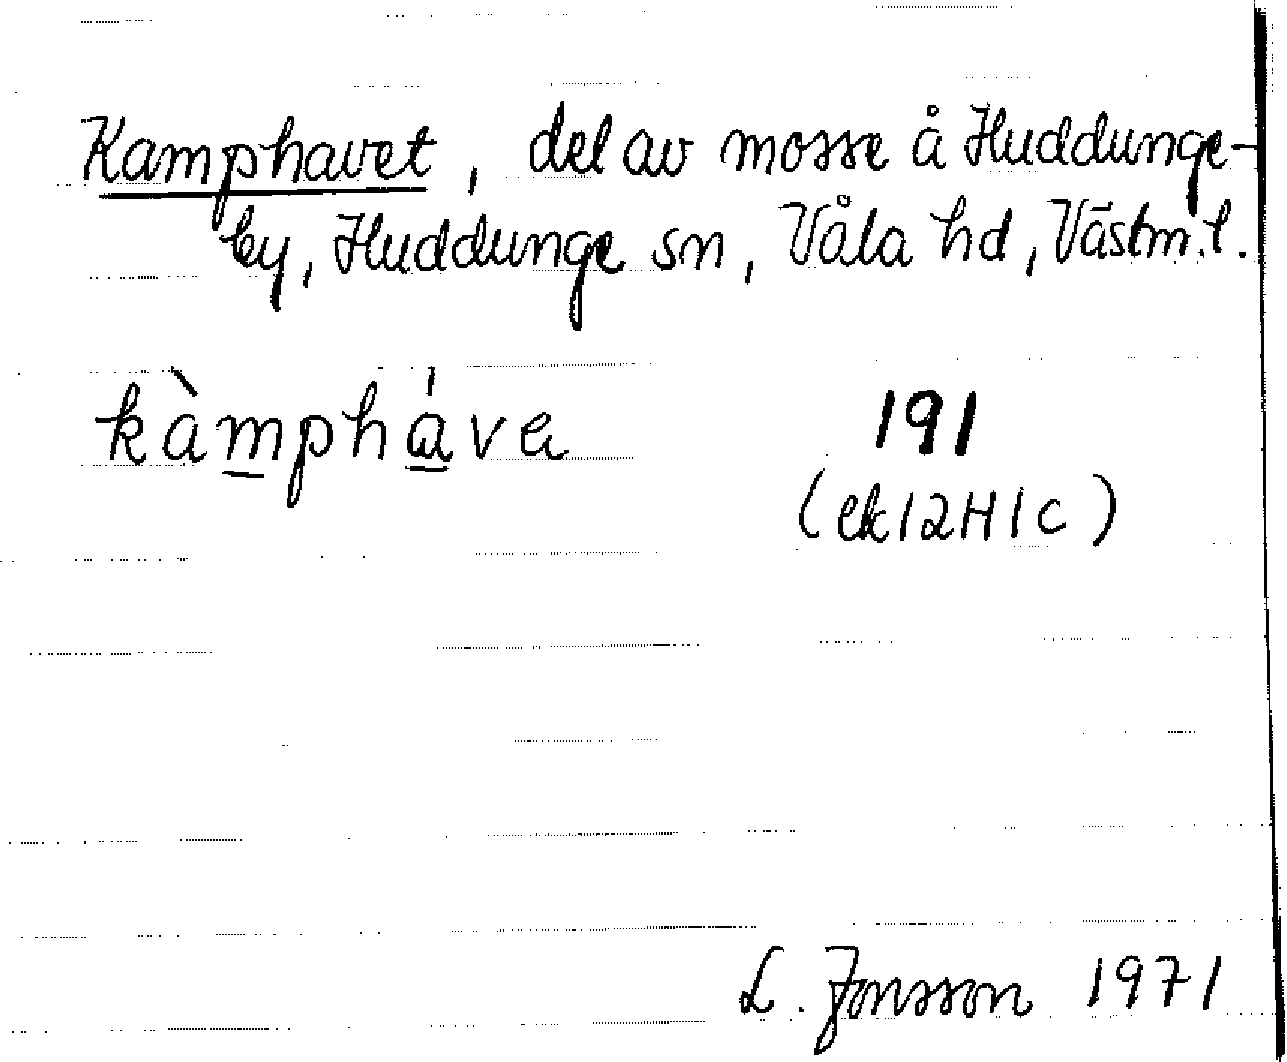 Kamphavet, del av mosse å Huddunge-
by, Huddunge sn, Våla hd, Västm. l.
kàmpháve
191
(ek 12H1c)
L. Jonsson 1971